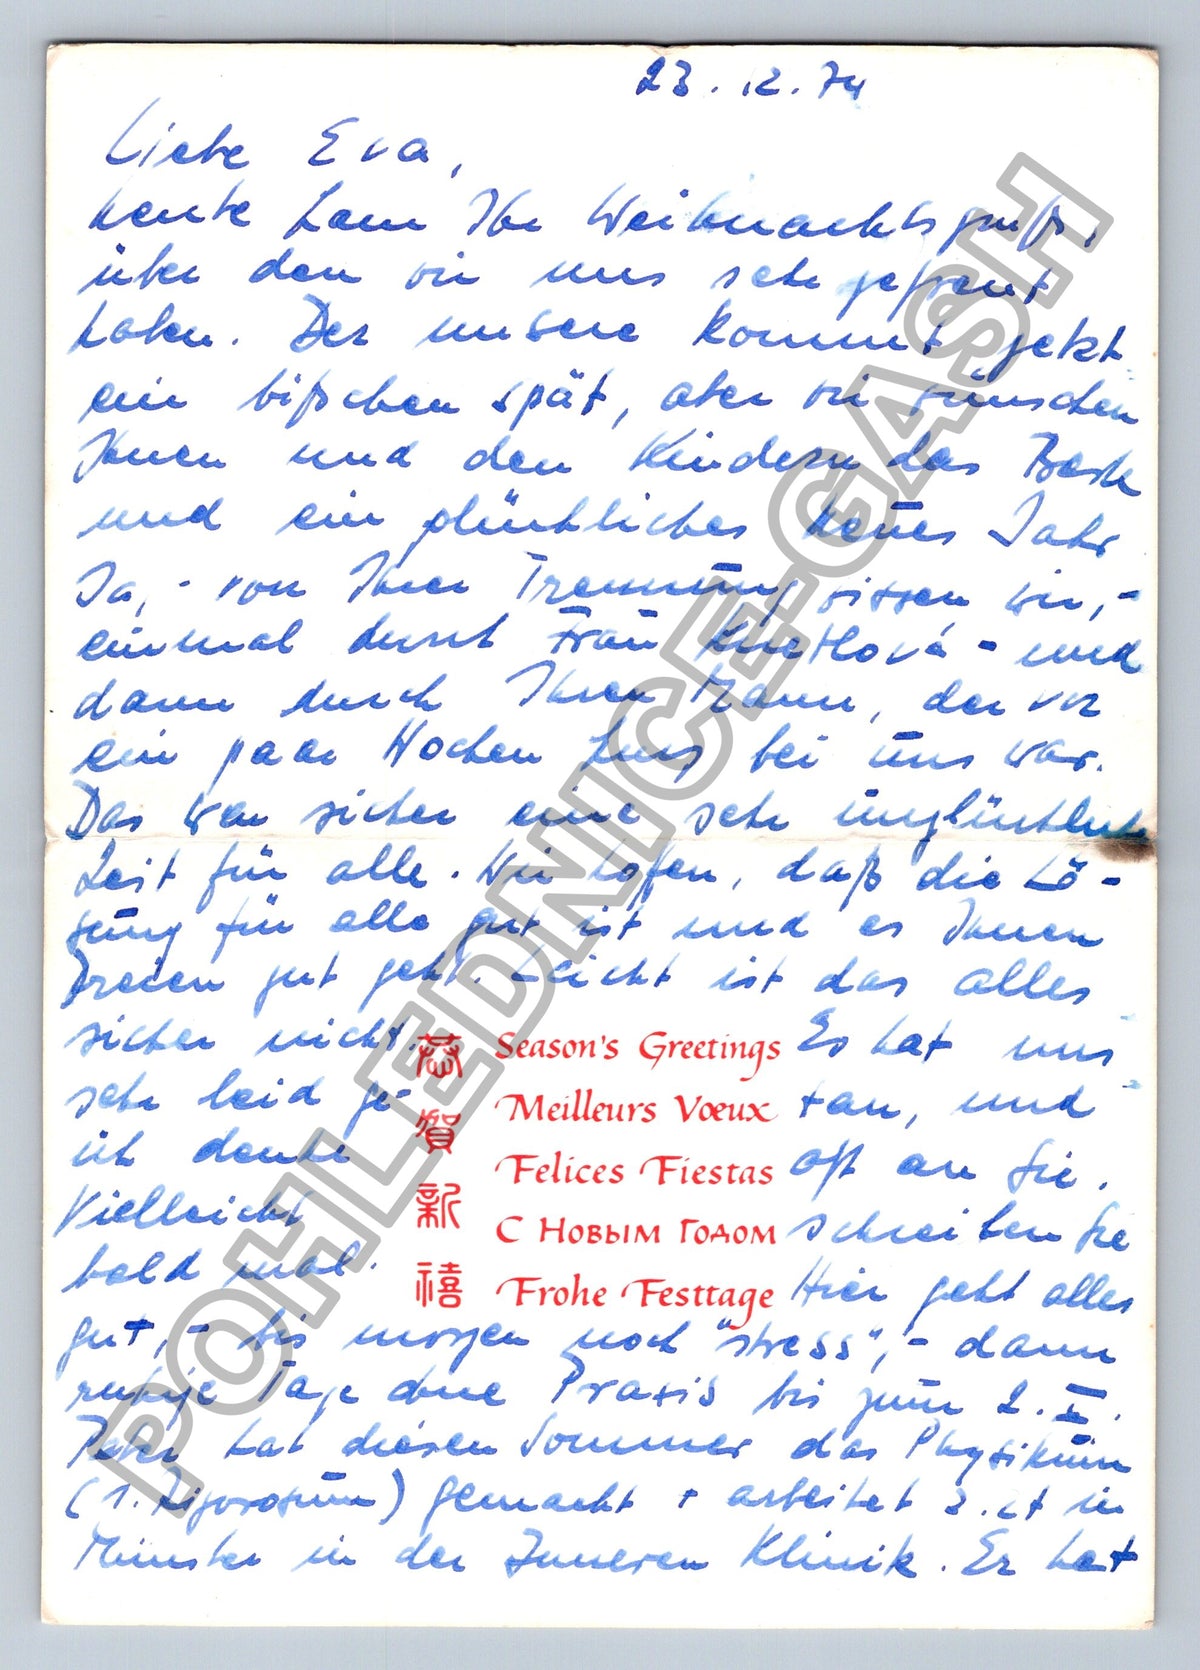 23.12.74
Liebe Eva,
heute kam Ihr Weihnachtsgruß,
über den wir uns sehr gefreut
haben. Der unsere kommt jetzt
ein bißchen spät, aber wir wünschen
Ihnen und den Kindern das Beste
und ein glückliches neues Jahr
Ja, - von Ihrer Trennung wissen wir, -
einmal durch Frau - und
dann durch Ihren Mann, der vor
ein paar Wochen kurz bei uns war.
Das war sicher eine sehr unglückliche
Zeit für alle. Wir hoffen, daß die Lö-
sung für alle gut ist und es Ihnen
Dreien gut geht. Leicht ist das alles
sicher nicht. Es hat uns
sehr leid ge- tan, und
ich denke oft an Sie.
Vielleicht schreiben Sie
bald mal. Hier geht alles
恭賀新禧
Season's Greetings
Meilleurs Vœux
Felices Fiestas
С Новым Годом
Frohe Festtage
gut, - bis morgen noch "stress", - dann
ruhige Tage ohne Praxis bis zum 2. I.
Peter hat diesen Sommer das Physikum
(1. Rigorosum) gemacht + arbeitet z. Zt in
Münster in der Inneren Klinik. Er hat
POHLEDNICE-GASH